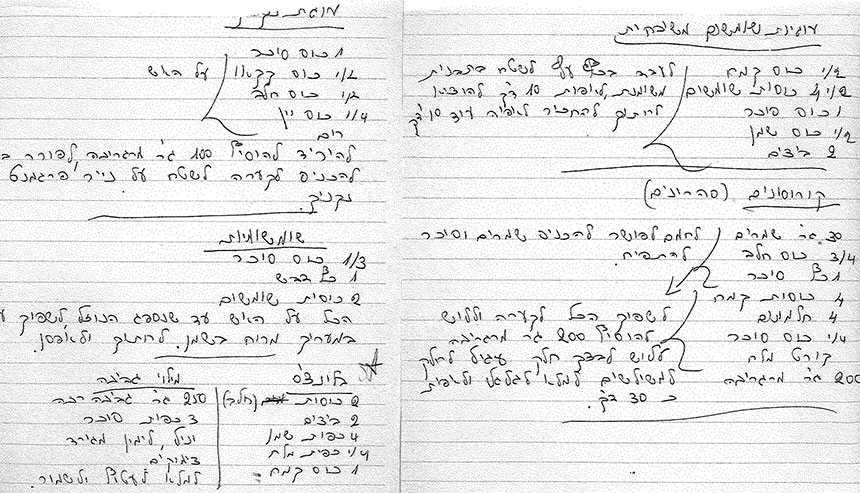 עוגיות שומשום משובחות
1/2 כוס קמח
1/2 4 כוסות שומשום
1 כוס סוכר
1/2 כוס שמן
2 ביצים
לערבב לשטח בתבנית
משומנת, לאפות 10 דק' להוציא
לחתוך להחזיר לאפיה עוד 10 דק'
קורוסונים (סהרונים)
30 גר' שמרים
3/4 כוס חלב
1 כף סוכר
לחמם לפושר להכניס שמרים וסוכר
להתפיח.
4 כוסות קמח
4 חלמונים
1/4 כוס סוכר
קורט מלח
200 גר' מרגרינה
לשפוך הכל לקערה וללוש
להוסיף 200 גר' מרגרינה
ללוש לבצק חלק עיגול לחלק
למשולשים למלא לגלגל ולאפות
כ 30 דק'.
עוגת
1 כוס סוכר
1/2 כוס קקאו
1/2 כוס חלב
1/4 כוס יין
רום
על האש
להוריד להוסיף 100 גר' מרגרינה, לפורר
להכניס לקערה לשטח על נייר פרגמנט
נקניק.
שומשומיות
1/3 כוס סוכר
1 כף דבש
2 כוסות שומשום
הכל על האש עד שנספג הנוזל, לשפוך
במערוך מרוח בשמן. לחתוך ולאחסן.
בלינצ'ס
2 כוסות (חלב)
2 ביצים
4 כפות שמן
1/4 כפית מלח
1 כוס קמח
מלוי גבינה
250 גר' גבינה רכה
3 כפות סוכר
וניל, לימון מגורד
צימוקים
למלא לעטוף ולשמור.